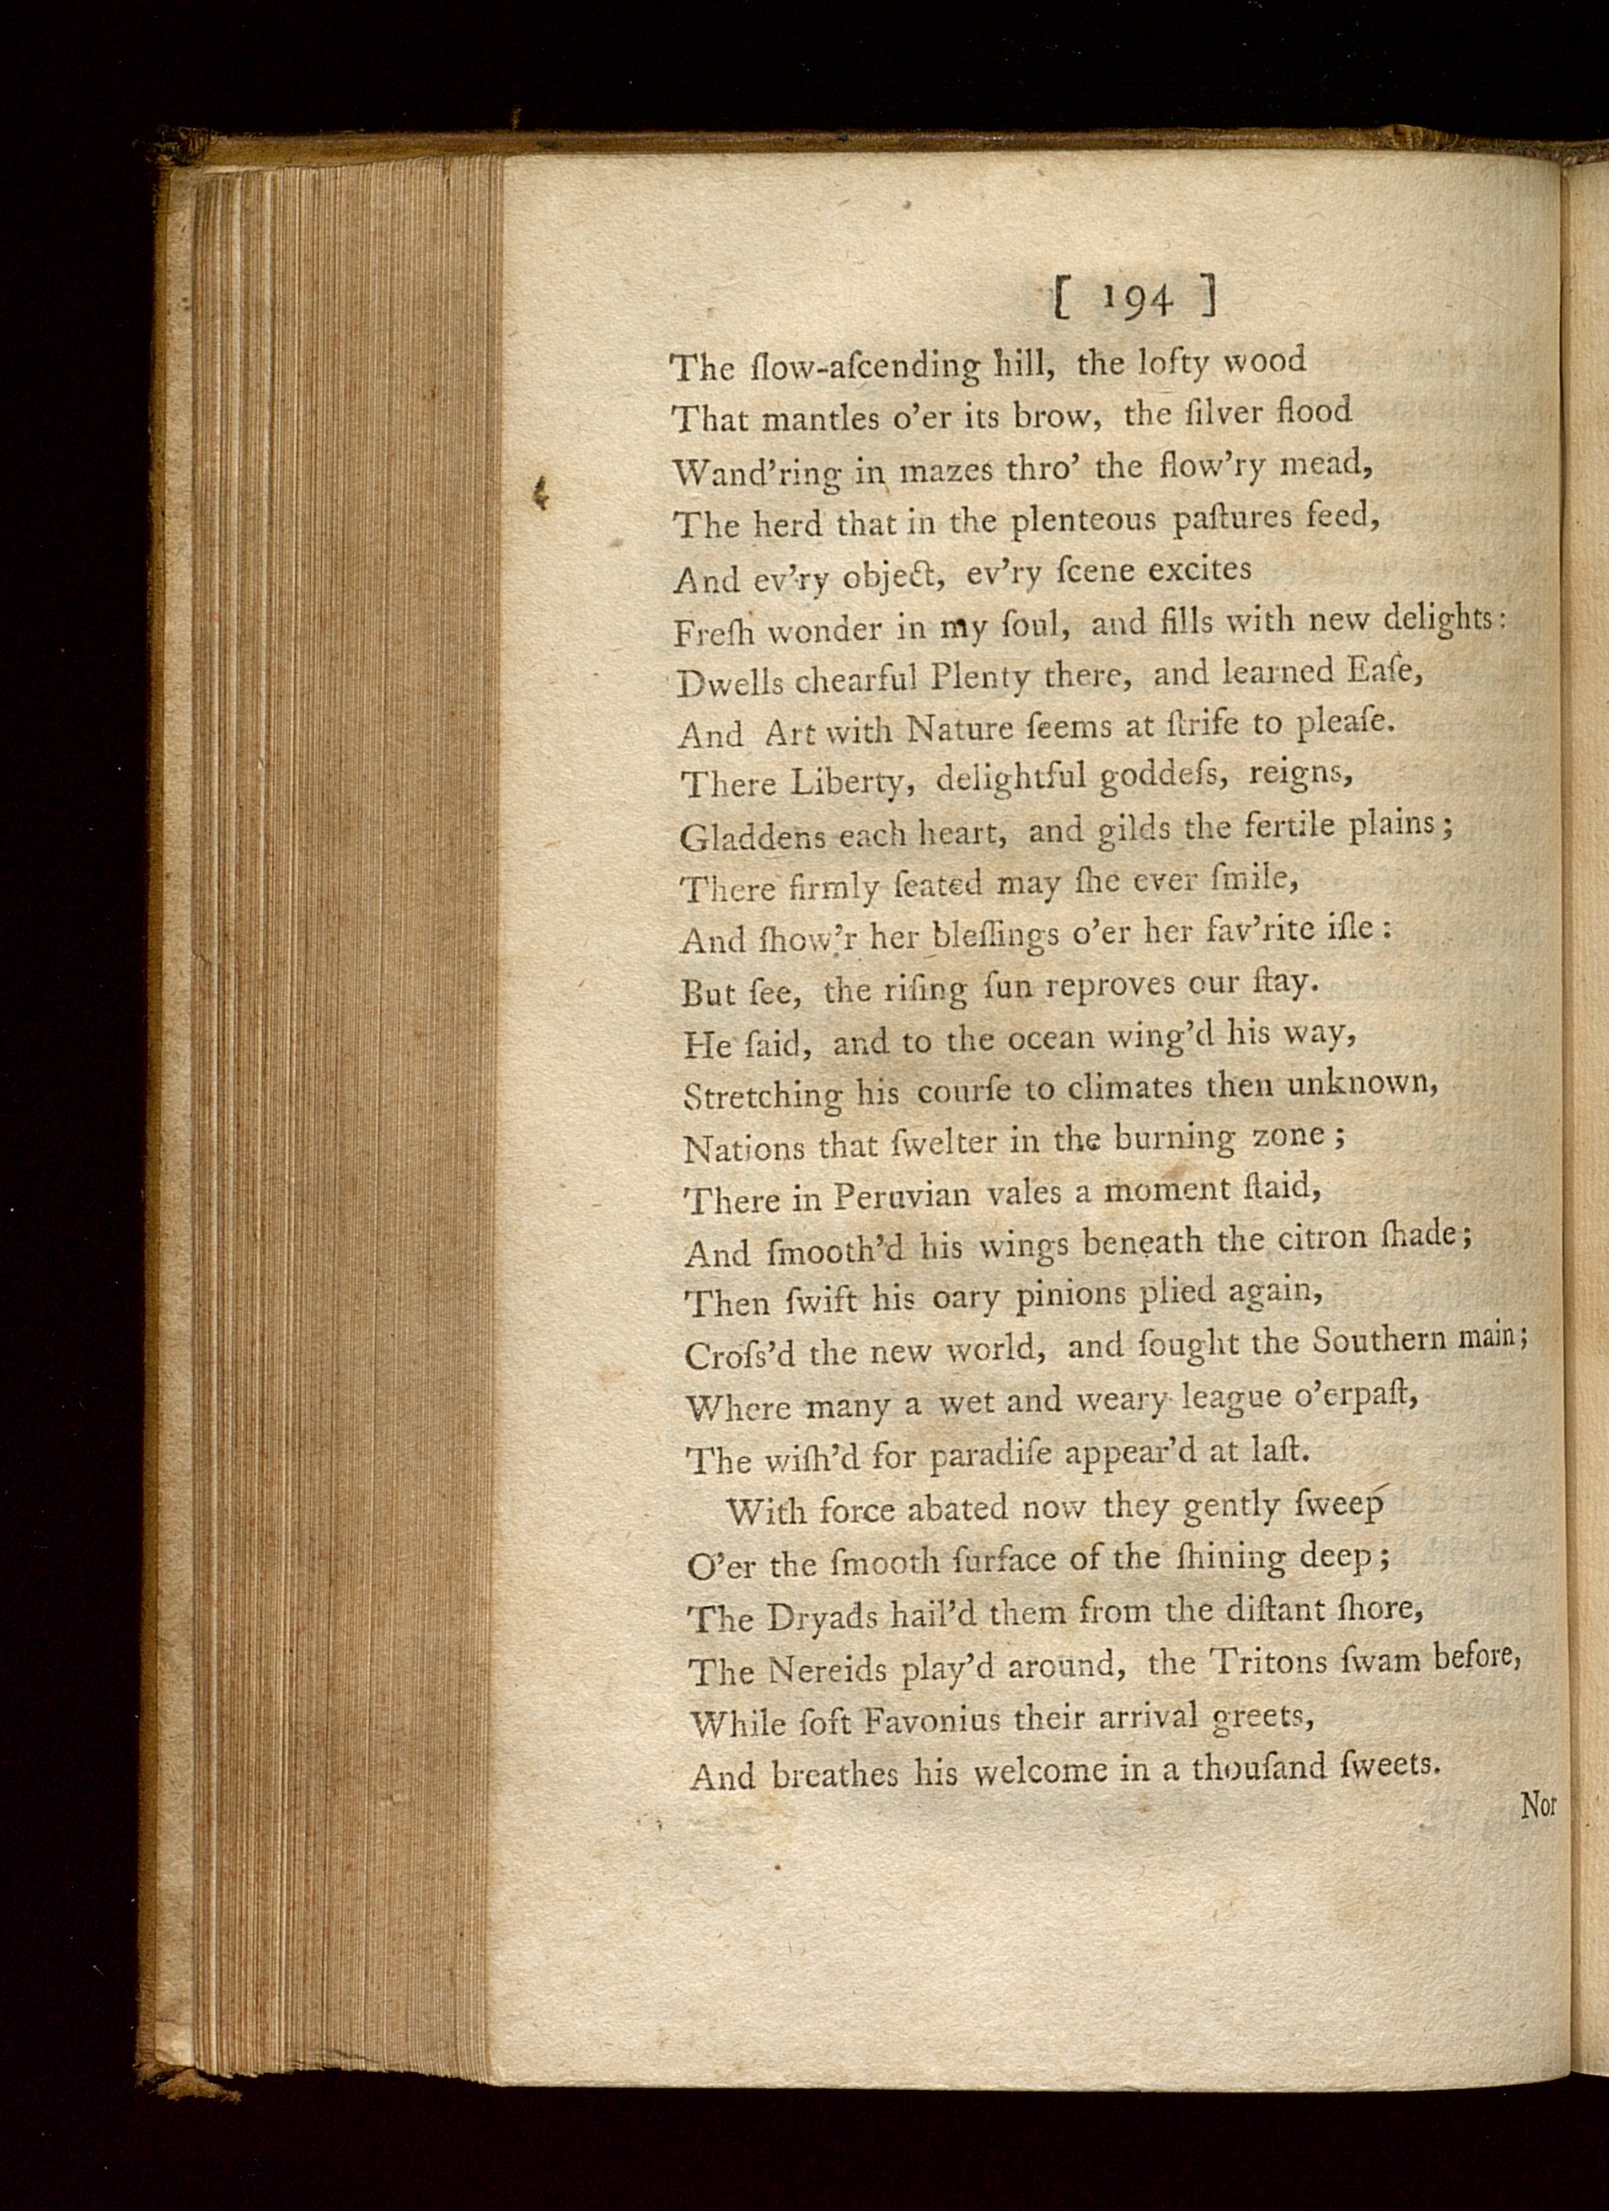 [ 194 ]
The ſlow-aſcending hill, the lofty wood
That mantles o'er its brow, the ſilver flood
Wand'ring in mazes thro' the flow'ry mead,
The herd that in the plenteous paſtures feed,
And ev'ry object, ev'ry ſcene excites
Freſh wonder in my ſoul, and fills with new delights:
Dwells chearful Plenty there, and learned Eaſe,
And Art with Nature ſeems at ſtrife to pleaſe.
There Liberty, delightful goddeſs, reigns,
Gladdens each heart, and gilds the fertile plains;
There firmly ſeated may ſhe ever ſmile,
And ſhow'r her bleſſings o'er her fav'rite iſle:
But ſee, the riſing ſun reproves our ſtay.
He ſaid, and to the ocean wing'd his way,
Stretching his courſe to climates then unknown,
Nations that ſwelter in the burning zone;
There in Peruvian vales a moment ſtaid,
And ſmooth'd his wings beneath the citron ſhade;
Then ſwift his oary pinions plied again,
Croſs'd the new world, and ſought the Southern main;
Where many a wet and weary league o'erpaſt,
The wiſh'd for paradiſe appear'd at laſt.
With force abated now they gently ſweep
O'er the ſmooth ſurface of the ſhining deep;
The Dryads hail'd them from the diſtant ſhore,
The Nereids play'd around, the Tritons ſwam before,
While ſoft Favonius their arrival greets,
And breathes his welcome in a thouſand ſweets.
Nor